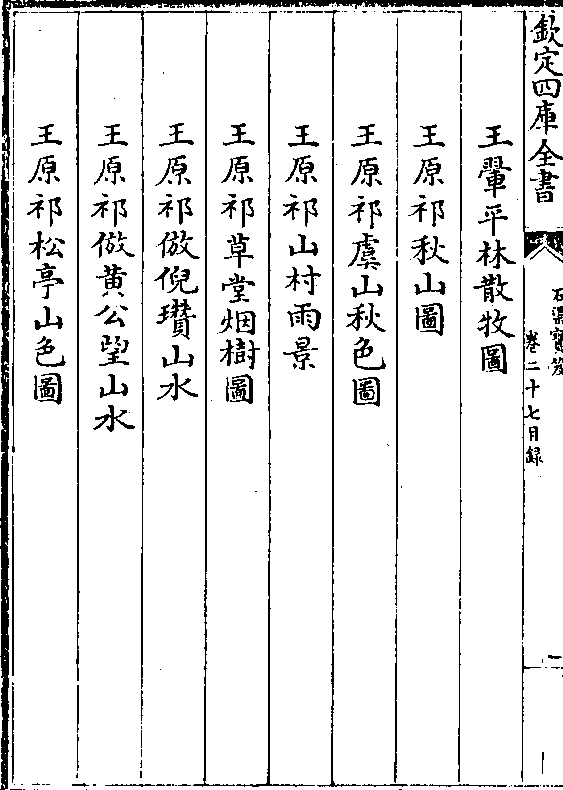 欽定四庫全書
石渠寶笈
卷二十七目録
二
王翬平林散牧圖
王原祁秋山圖
王原祁虞山秋色圖
王原祁山村雨景
王原祁草堂烟樹圖
王原祁倣倪瓚山水
王原祁倣黄公望山水
王原祁松亭山色圖